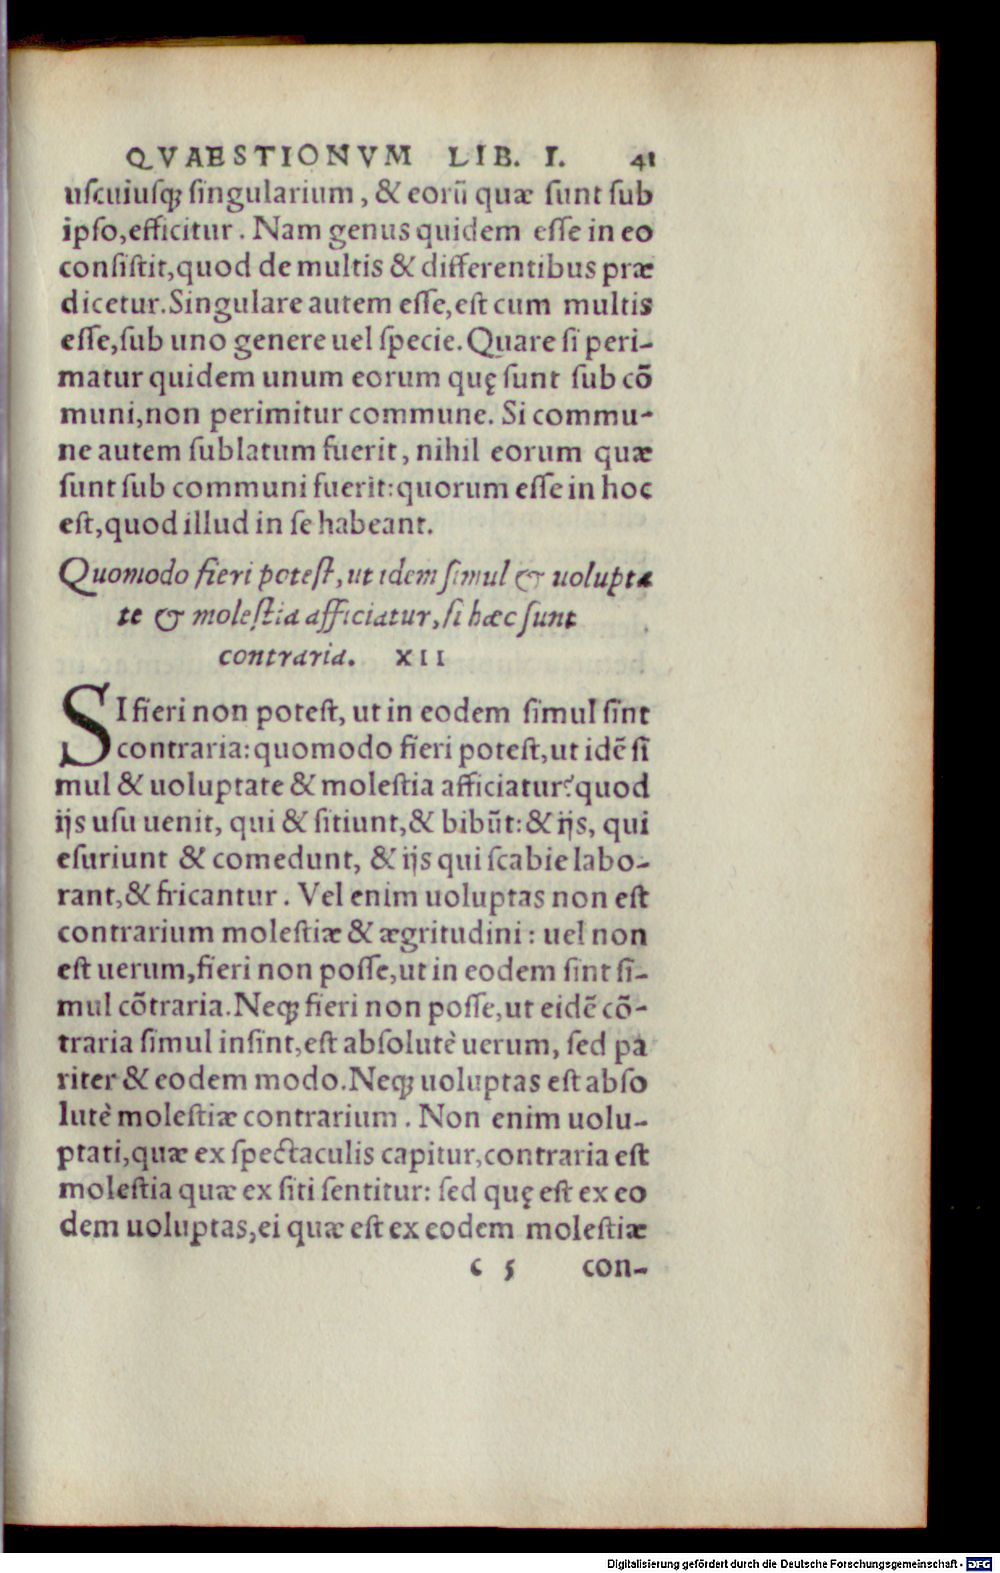 QVAESTIONVM LIB. I. 41
uscuiusq; singularium, & eorū quæ sunt sub
ipso, efficitur. Nam genus quidem esse in eo
consistit, quod de multis & differentibus præ
dicetur. Singulare autem esse, est cum multis
esse, sub uno genere uel specie. Quare si peri-
matur quidem unum eorum quę sunt sub cō
muni, non perimitur commune. Si commu-
ne autem sublatum fuerit, nihil eorum quæ
sunt sub communi fuerit: quorum esse in hoc
est, quod illud in se habeant.
Quomodo fieri potest, ut idem simul & uolupta
te & molestia afficiatur, si hæc sunt
contraria. XII
SI fieri non potest, ut in eodem simul sint
contraria: quomodo fieri potest, ut idē si
mul & uoluptate & molestia afficiatur? quod
ijs usu uenit, qui & sitiunt, & bibūt: & ijs, qui
esuriunt & comedunt, & ijs qui scabie labo-
rant, & fricantur. Vel enim uoluptas non est
contrarium molestiæ & ægritudini: uel non
est uerum, fieri non posse, ut in eodem sint si-
mul cōtraria. Neq; fieri non posse, ut eidē cō-
traria simul insint, est absolutè uerum, sed pa
riter & eodem modo. Neq; uoluptas est abso
lutè molestiæ contrarium. Non enim uolu-
ptati, quæ ex spectaculis capitur, contraria est
molestia quæ ex siti sentitur: sed quę est ex eo
dem uoluptas, ei quæ est ex eodem molestiæ
c 5 con-
Digitalisierung gefördert durch die Deutsche Forschungsgemeinschaft - DFG